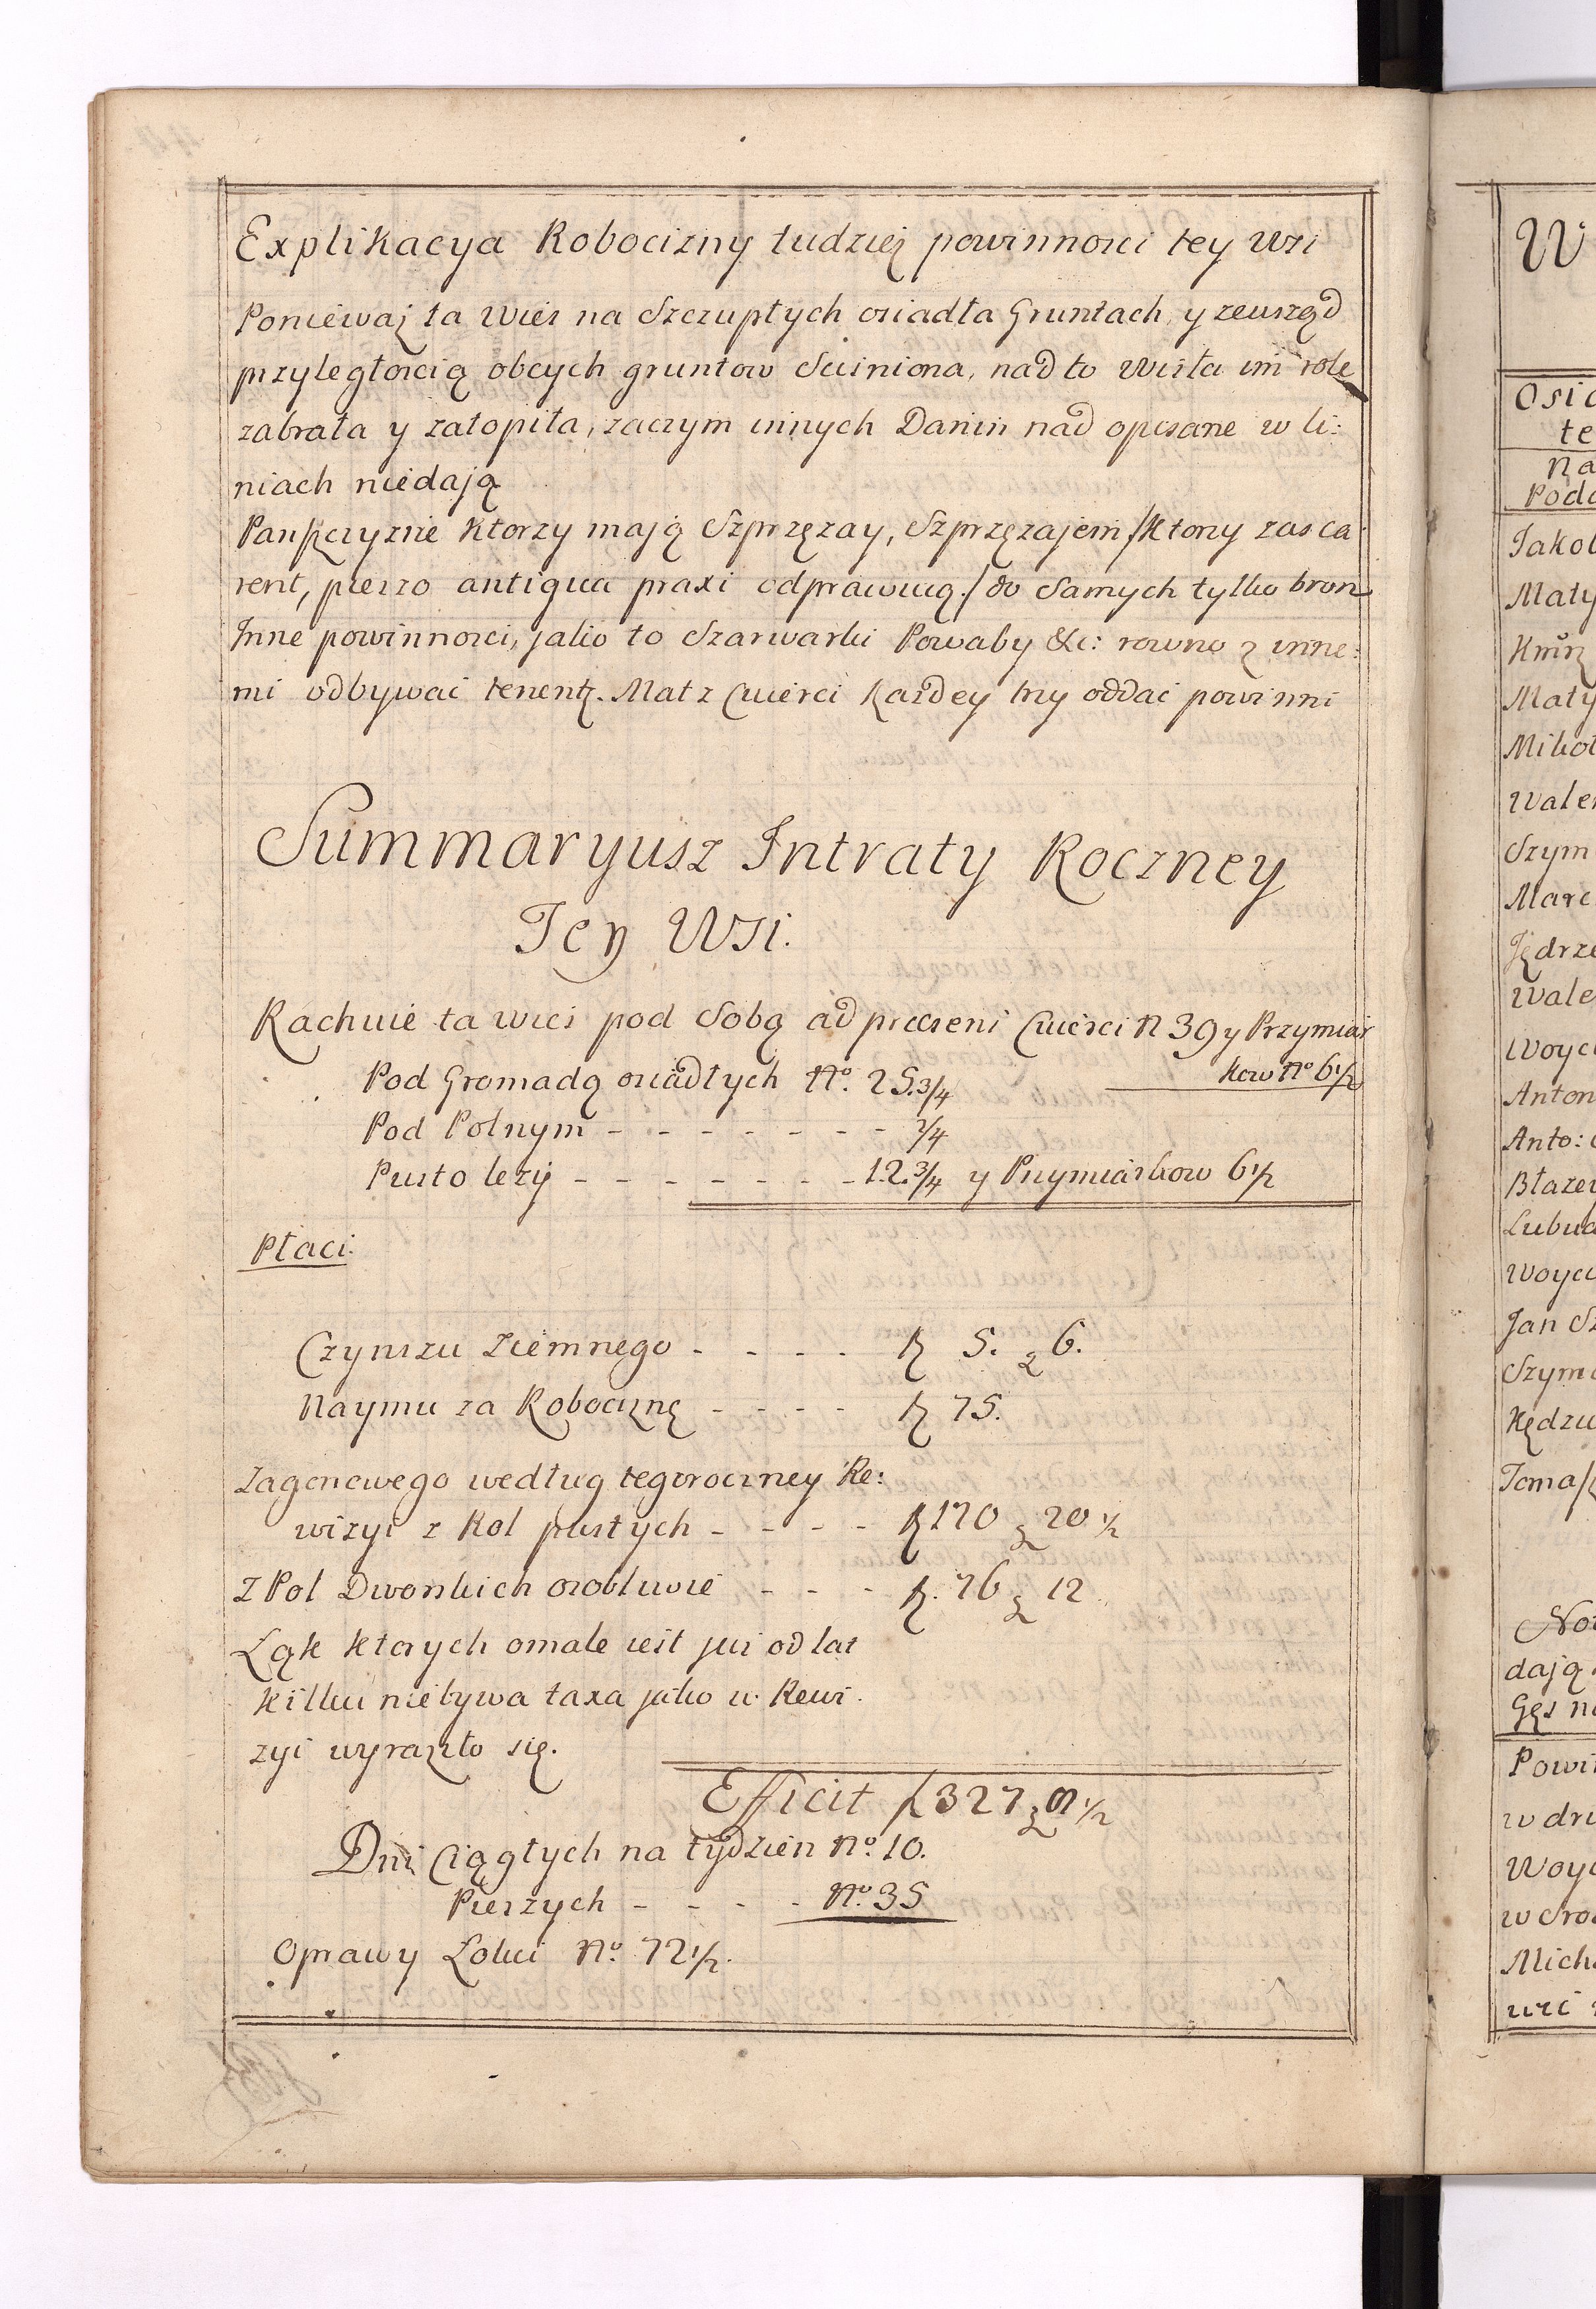 Explikacya Robocizny tudziez powinnosci tey Wsi
Poniewaz ta Wies na Szczupłych osiadła Gruntach, y zewsząd
przyległoscią obcych gruntow Scisniona, nad to Wisła im role
zabrała y zatopiła, zaczym innych Danin nad opisane w li:
niach niedają
Panszczyznę Ktorzy maią Szprzęzay, Szprzęzajem /Ktorzy zas ca:
rent, pieszo antiqua praxi odprawuią./ do Samych tylko bron
Inne powinnosci, jako to Szarwarki Powaby &c: rowno z inne:
mi odbywac tenentr. Mat z Cwierci Kazdey trzy oddac powinni
Summaryusz Intraty Roczney
Tey Wsi.
Rachuie ta wies pod Sobą ad præsens Cwierci N 39 y Przymiar
kow No 6 1/2
Pod Gromadą osiadłych No. 25.3/4
Pod Polnym - - - - - - - 2/4
Pusto lezy - - - - - - - 12.3/4 y Przymiarkow 6 1/2
Płaci.
Czynszu Ziemnego - - - - 5. 6.
Naymu za Robociznę - - - - 75.
Zagonowego według tegoroczney Re:
wizyi z Rol pustych - - - - 170 20 1/2
Z Pol Dworskich osobliwie - - - 76 12.
Łąk Ktorych omale iest juz od lat
Kilku niebywa taxa jako w Rewi:
zyi wyraziło się.
Efficit 327 9 1/2
Dni Ciągłych na tydzien No. 10.
Pieszych - - - - No. 35
Oprawy Łokci No. 72 1/2.
W
Osia
te
Na
Podd
Jakob
Maty
Kmin
Maty
Mikoł
Walen
Szym
Marc
Jędrze
Wale
Woyci
Anton
Anto:
Błazey
Lubua
Woyci
Jan Sz
Szymo
Kędzu
Toma
Not
dają
Gęs na
Powi
w dru
Woyc
w Sro
Mich